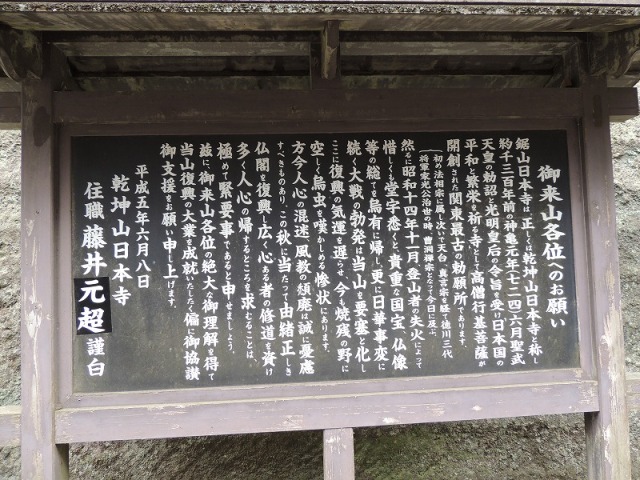 御来山各位へのお願い
鋸山日本寺は、正しくは乾坤山日本寺と称し
約千三百年前の神亀元年(七二四)六月聖武
天皇の勅詔と光明皇后の令旨を受け日本国の
平和と繁栄を祈る寺として高僧行基菩薩が
開創された関東最古の勅願所であります。
(初め法相宗に属し次いで天台、真言宗を経て徳川三代
将軍家光公治世の時、曹洞禅宗となって今日に及ぶ。
然るに昭和十四年十一月登山者の失火によって
惜しくも堂宇悉くと、貴重な国宝、仏像
等の総てを烏有に帰し、更に日華事変に
続く大戦の勃発は当山を要塞と化し
ここに復興の気運を遅らせ、今も焼残の野に
空しく烏虫を嘆かしめる惨状にあります。
方今人心の混迷、風教の頽廃は誠に憂慮
すべきものあり、この秋に当たって由緒正しき
仏閣を復興し広く心ある者の修道を資け
多く人心の帰するところを求むることは、
極めて緊要事であると申せましょう。
茲に、御来山各位の絶大な御理解を得て
当山復興の大業を成就いたしたく偏に御協讃
御支援をお願い申し上げます。
平成五年六月八日
乾坤山日本寺
住職 藤井元超 謹白